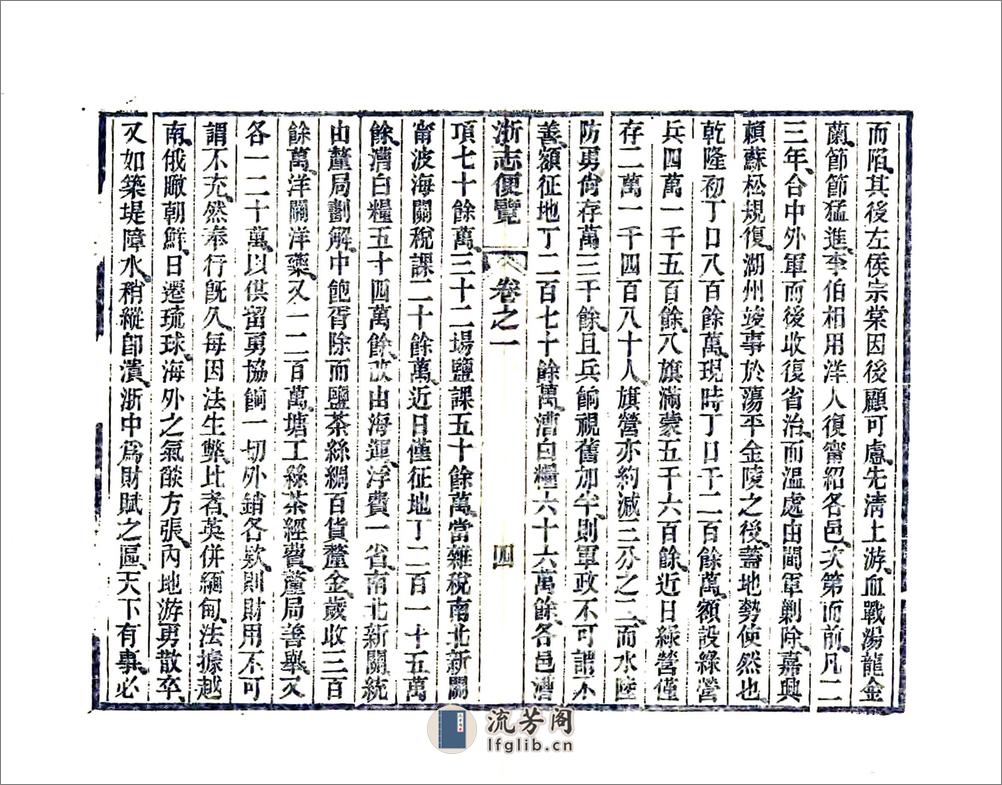 而陷其後左侯宗棠因後顧可慮先清上游血戰湯龍金
蘭節節猛進李伯相用洋人復甯紹各邑次第而前凡二
三年合中外軍而後收復省治而溫處由閩軍剿除嘉興
賴蘇松規復湖州竣事於蕩平金陵之後蓋地勢使然也
乾隆初丁口八百餘萬現時丁口千二百餘萬額設綠營
兵四萬一千五百餘八旗滿蒙五千六百餘近日綠營僅
存二萬一千四百八十人旗營亦約減三分之二而水陸
防勇尙存萬三千餘且兵餉視舊加半則軍政不可謂不
善額征地丁二百七十餘萬漕白糧六十六萬餘各邑漕
浙志便覽 卷之一 四
項七十餘萬三十二場鹽課五十餘萬當雜稅南北新關
甯波海關稅課二十餘萬近日僅征地丁二百一十五萬
餘漕白糧五十四萬餘改由海運浮費一省南北新關統
由釐局劃解中飽胥除而鹽茶絲綢百貨釐金歲收三百
餘萬洋關洋藥又一二百萬塘工絲茶經費釐局善舉又
各一二十萬以供留勇協餉一切外銷各款則財用不可
謂不充然奉行旣久每因法生弊比者英併緬甸法據越
南俄瞰朝鮮日遷琉球海外之氣燄方張內地游勇散卒
又如築堤障水稍縱卽潰浙中爲財賦之區天下有事必
流芳阁
lfglib.cn